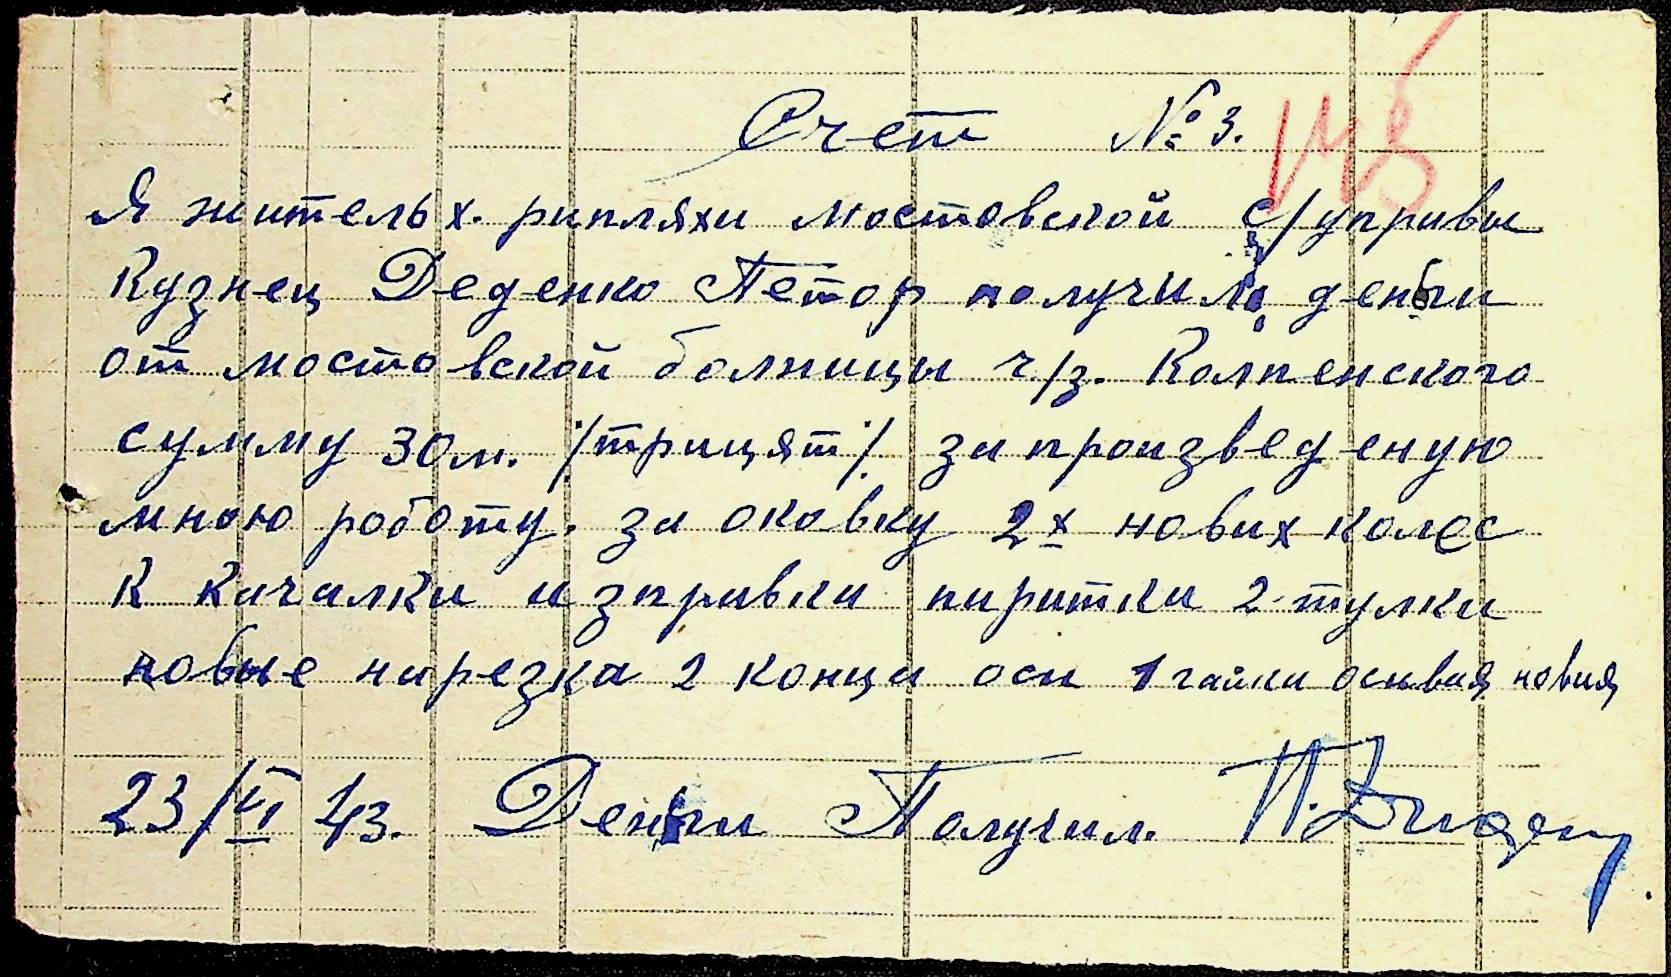 Счет № 3.
Я житель х. рипляхи мостовской с/управы
Кузнец Деденко Петор получил деньги
от мостовской болницы ч/з. Колпенского
сумму 30 м. /трицят/ за произведеную
мною роботу. за оковку 2х нових колес
к качалки и заправки паритки 2 тулки
новые нарезка 2 конца оси 1 гайка осивая новия
23/VI 43. Деньги Получил.